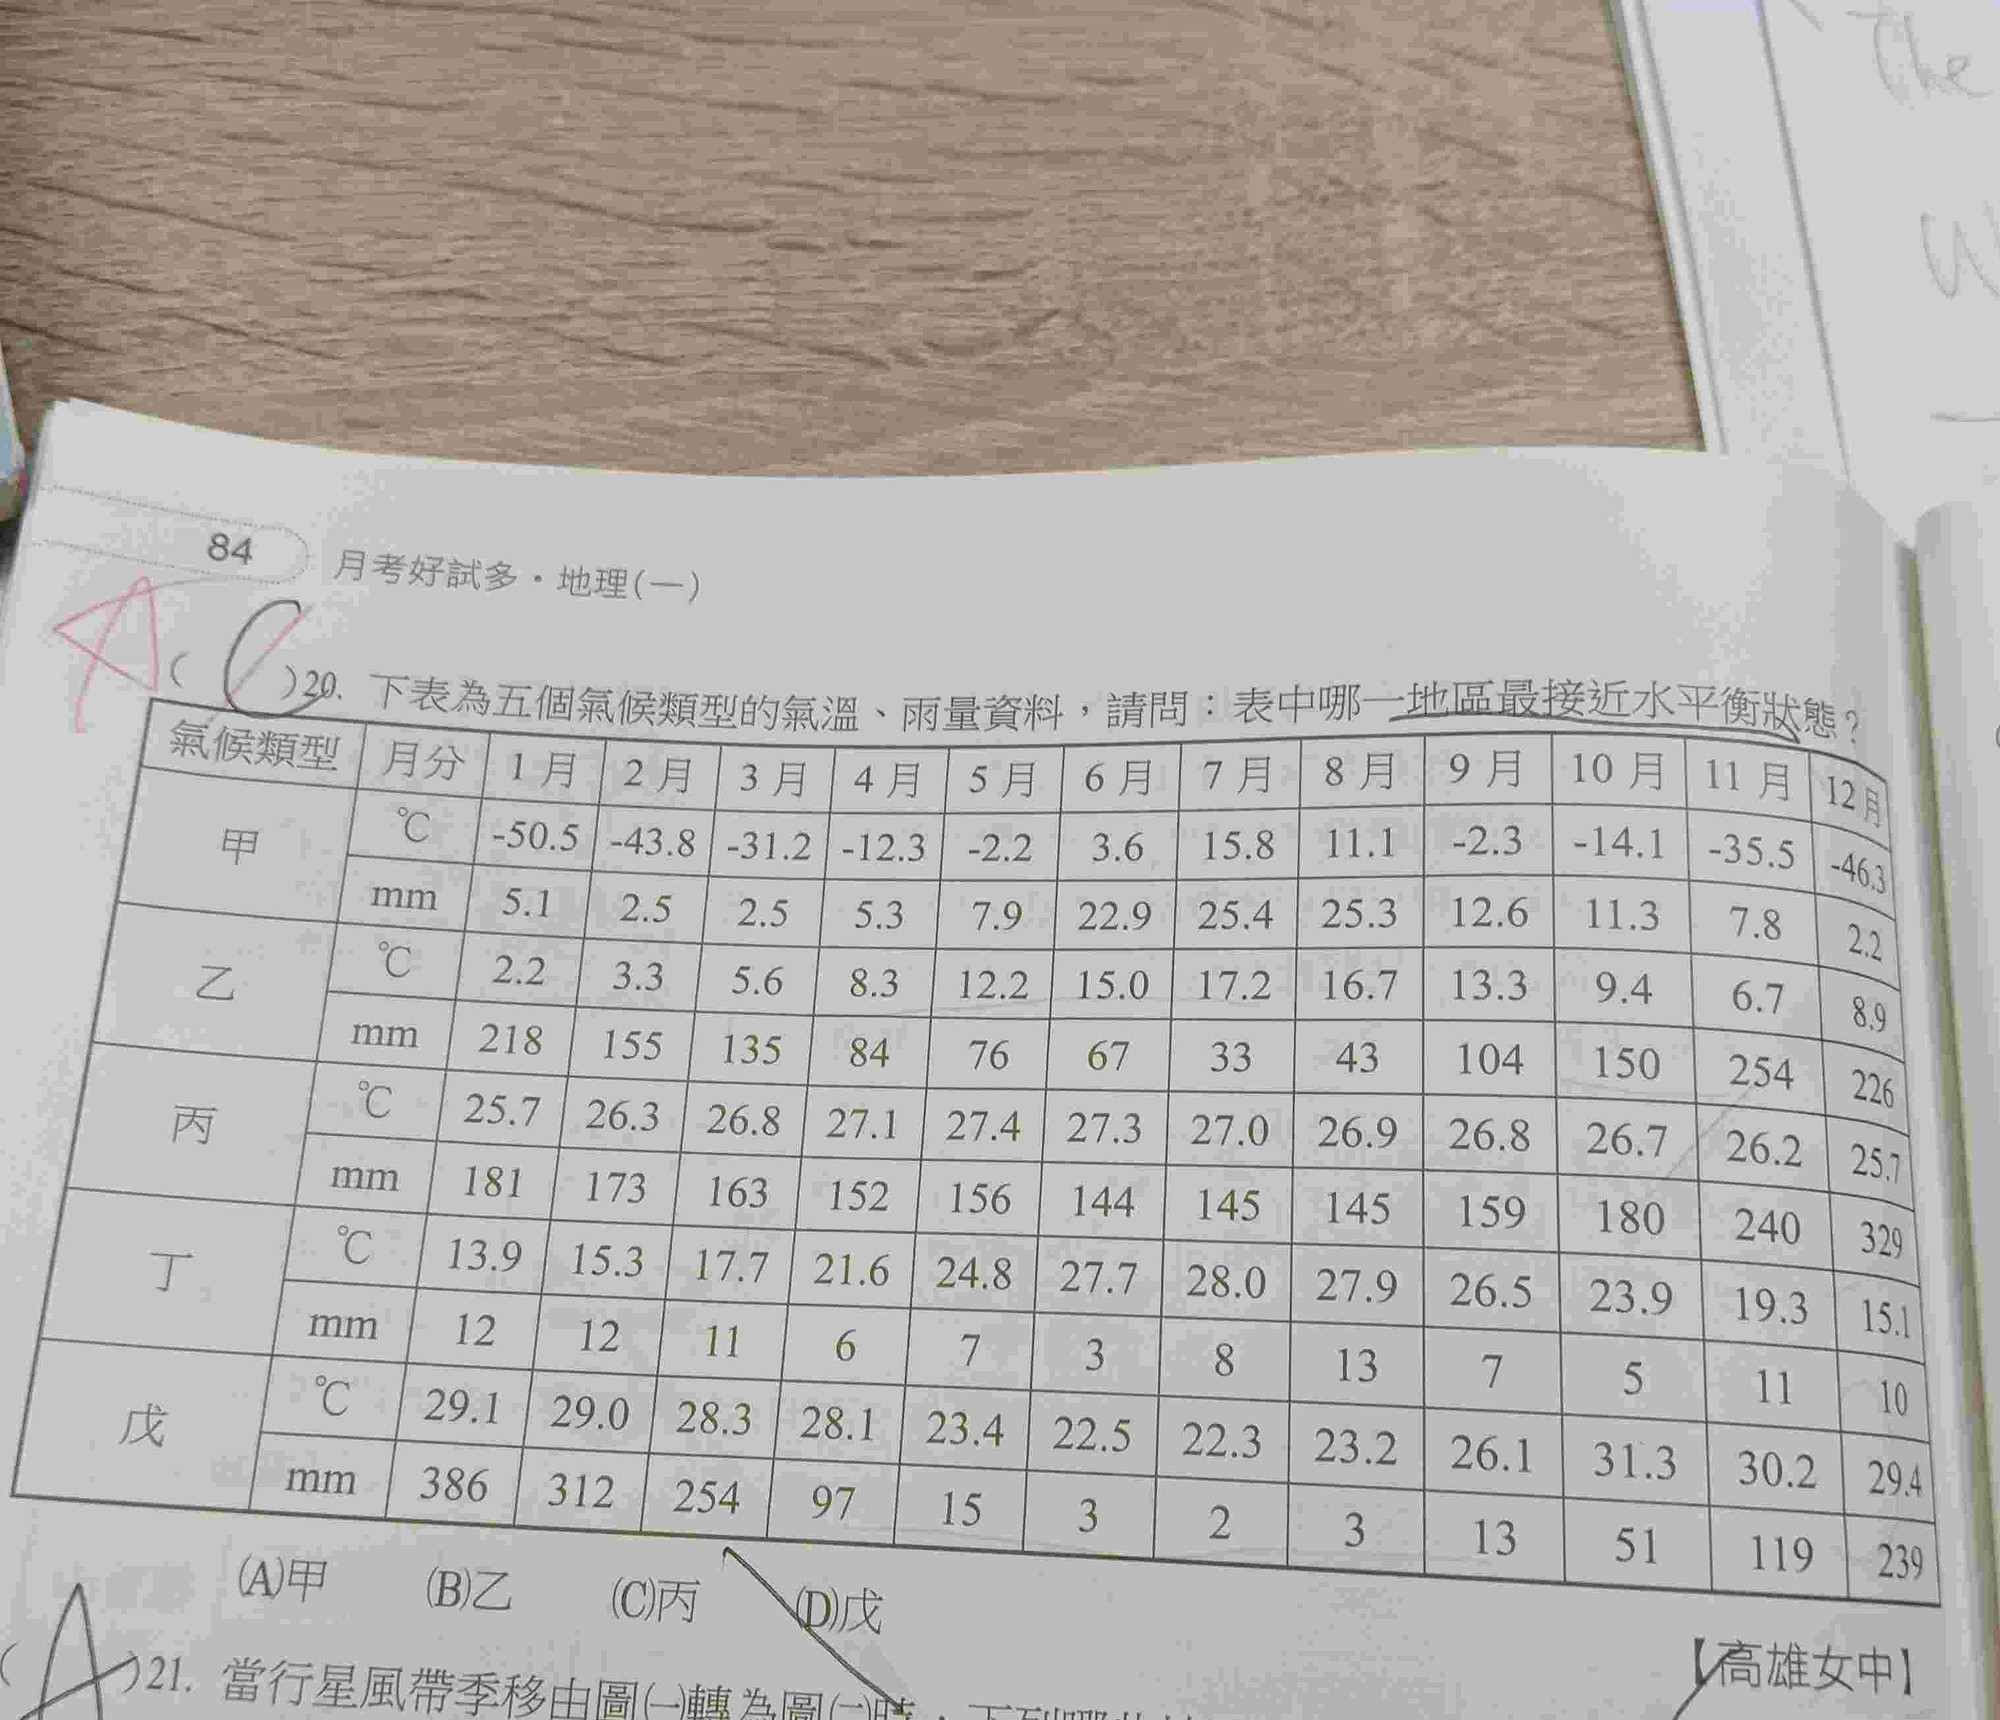 The
W
84 月考好試多・地理(一)
A
( C )20. 下表為五個氣候類型的氣溫、雨量資料，請問：表中哪一地區最接近水平衡狀態？
氣候類型 月分 1月 2月 3月 4月 5月 6月 7月 8月 9月 10月 11月 12月
甲 ℃ -50.5 -43.8 -31.2 -12.3 -2.2 3.6 15.8 11.1 -2.3 -14.1 -35.5 -46.3
mm 5.1 2.5 2.5 5.3 7.9 22.9 25.4 25.3 12.6 11.3 7.8 2.2
乙 ℃ 2.2 3.3 5.6 8.3 12.2 15.0 17.2 16.7 13.3 9.4 6.7 8.9
mm 218 155 135 84 76 67 33 43 104 150 254 226
丙 ℃ 25.7 26.3 26.8 27.1 27.4 27.3 27.0 26.9 26.8 26.7 26.2 25.7
mm 181 173 163 152 156 144 145 145 159 180 240 329
丁 ℃ 13.9 15.3 17.7 21.6 24.8 27.7 28.0 27.9 26.5 23.9 19.3 15.1
mm 12 12 11 6 7 3 8 13 7 5 11 10
戊 ℃ 29.1 29.0 28.3 28.1 23.4 22.5 22.3 23.2 26.1 31.3 30.2 29.4
mm 386 312 254 97 15 3 2 3 13 51 119 239
(A)甲 (B)乙 (C)丙 (D)戊
【高雄女中】
( A )21. 當行星風帶季移由圖(一)轉為圖(二)時，下列哪